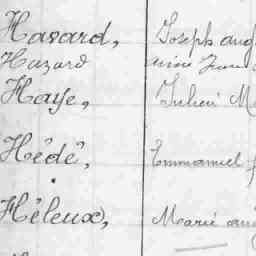 Havard, Joseph aug
Huzard
Haye, Julien M
Hêdê, Emmanuel f
Hêleux, Marie aug